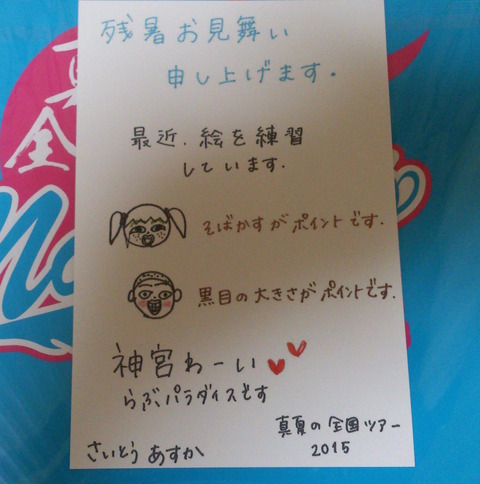 残暑お見舞い
申し上げます.
最近.絵を練習
しています.
そばかすがポイントです.
黒目の大きさがポイントです.
神宮わーい
らぶパラダイスです
真夏の全国ツアー
2015
さいとう あすか
真
全